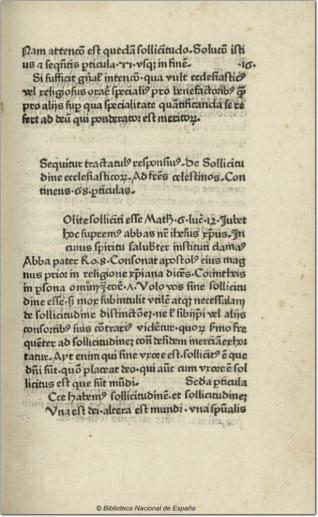 Nam attencō est quedā sollicitudo. Solucō isti
us a sequētis pticula. vsq; in finē. .16.
Si sufficit gñal' intencō. qua vult ecclesiastic9
vel religiosus orare spēalis pro benefactorib9 q̄
pro alijs sup qua specialitate quantificanda se re
fert ad deū qui ponderator est meritoꝝ.
Sequitur tractatul9 responsiu9. de Sollicitu
dine ecclesiasticoꝝ. Ad frēs celestinos. Con
tinens .68. pticulas.
Olite solliciti esse Math. 6. luc̄. 12. Iubet
hoc supremus abbas nr̄ ihesus xp̄us. In
cuius spiritu salubter instituti clamam9
Abba pater Ro. 8. Consonat apostol9 eius mag
nus prior in religione xp̄iana dicēs. Corintheis
in psona Volo vos sine sollicitu
dine esse. mox subintulit vtilē atq; necessariam
de sollicitudine distinctōeꝫ. ne sibijpi vel alijs
consortib9 suis cōtrari9 videtur. quoꝝ sermo fre
quēter ad sollicitudineꝫ cōn desidem inerciā exhor
tatur. Ayt enim qui sine vxore est. sollicit9 ē que
dn̄i sūt. quō placeat deo. qui aūt cum vxore ē sol
licitus est que sūt mūdi. Secda pticula
Cce habem9 sollicitudinē. et sollicitudineꝫ
Vna est dei. altera est mundi. vna spūalis
© Biblioteca Nacional de España